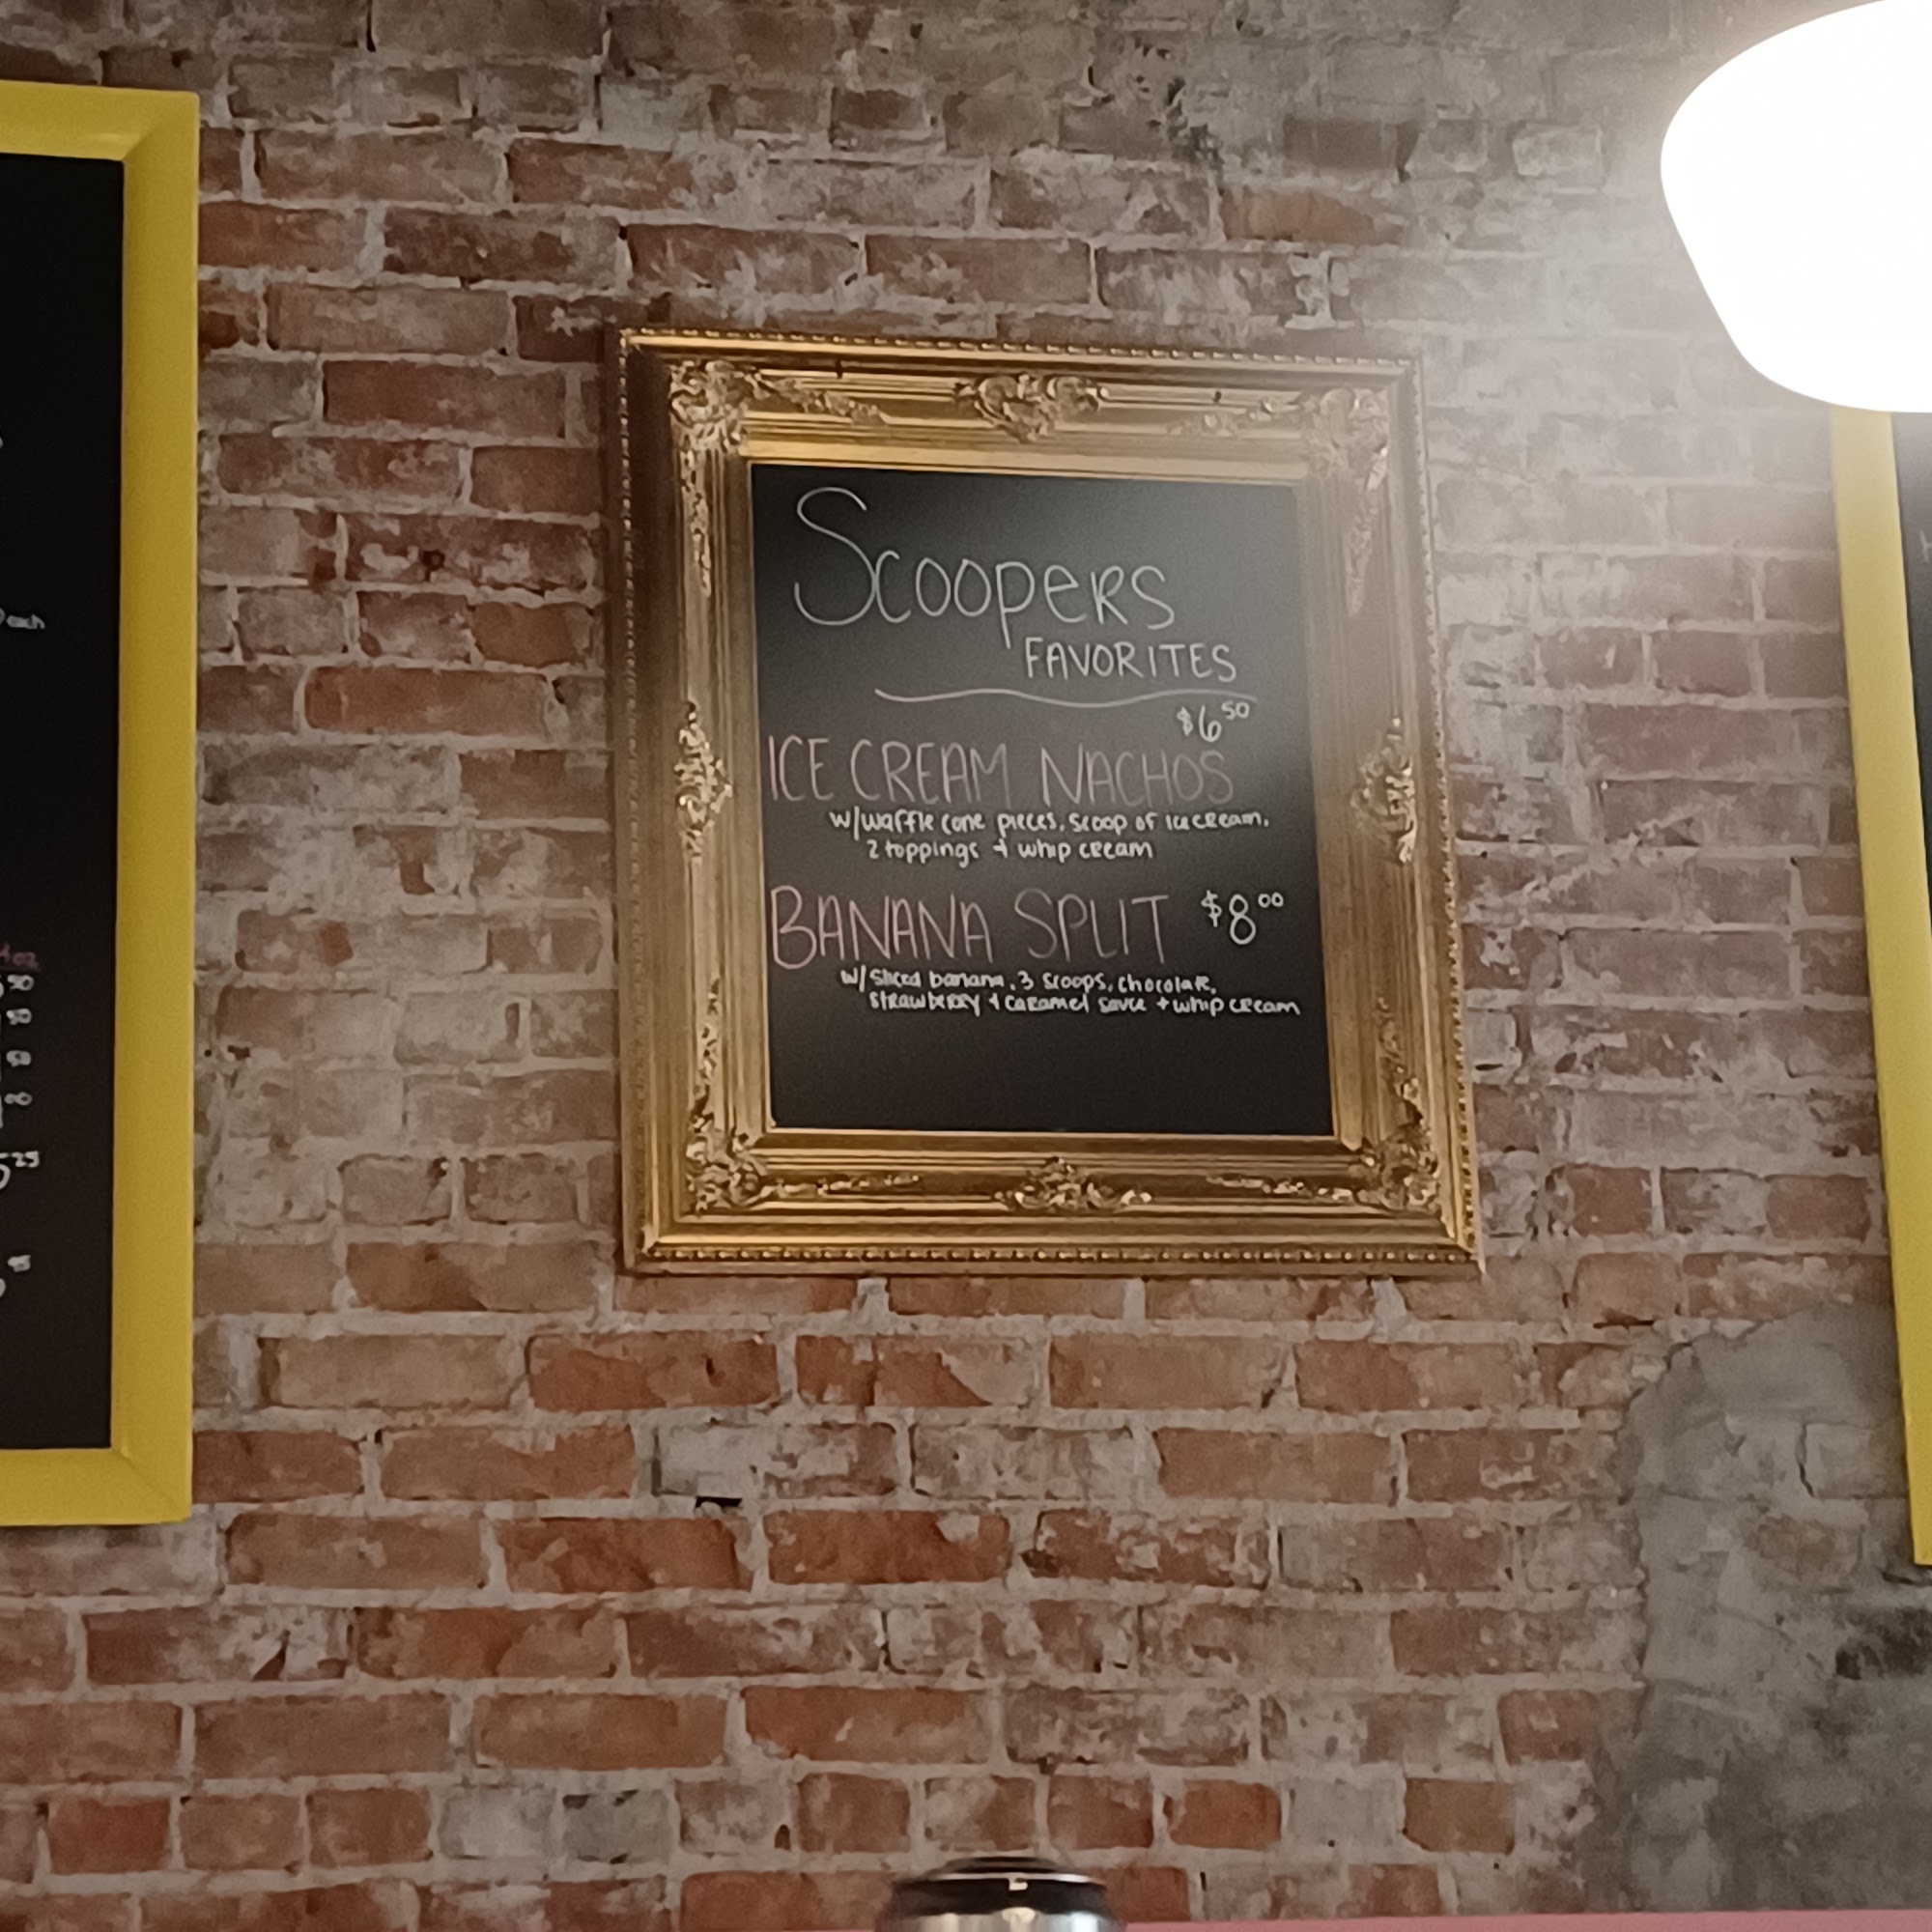 Scoopers
FAVORITES
$6 50
ICE CREAM NACHOS
w/waffle cone pieces, scoop of ice cream,
2 toppings + whip cream
BANANA SPLIT $8 00
w/ sliced banana, 3 scoops, chocolate,
strawberry + caramel sauce + whip cream
each
50
50
50
00
5 25